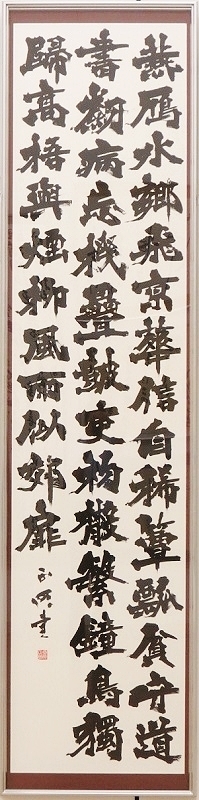 燕鴈水鄉飛京華信自稀簞瓢貧守道
書劒病忘機疊鼓吏初散繁鐘鳥獨
歸高梧與煙柳風雨似郊扉